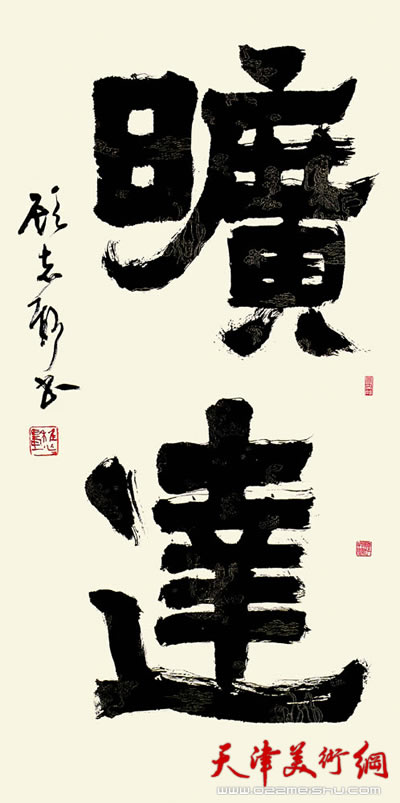 曠達
顾志新书
天津美術網
www.022meishu.com